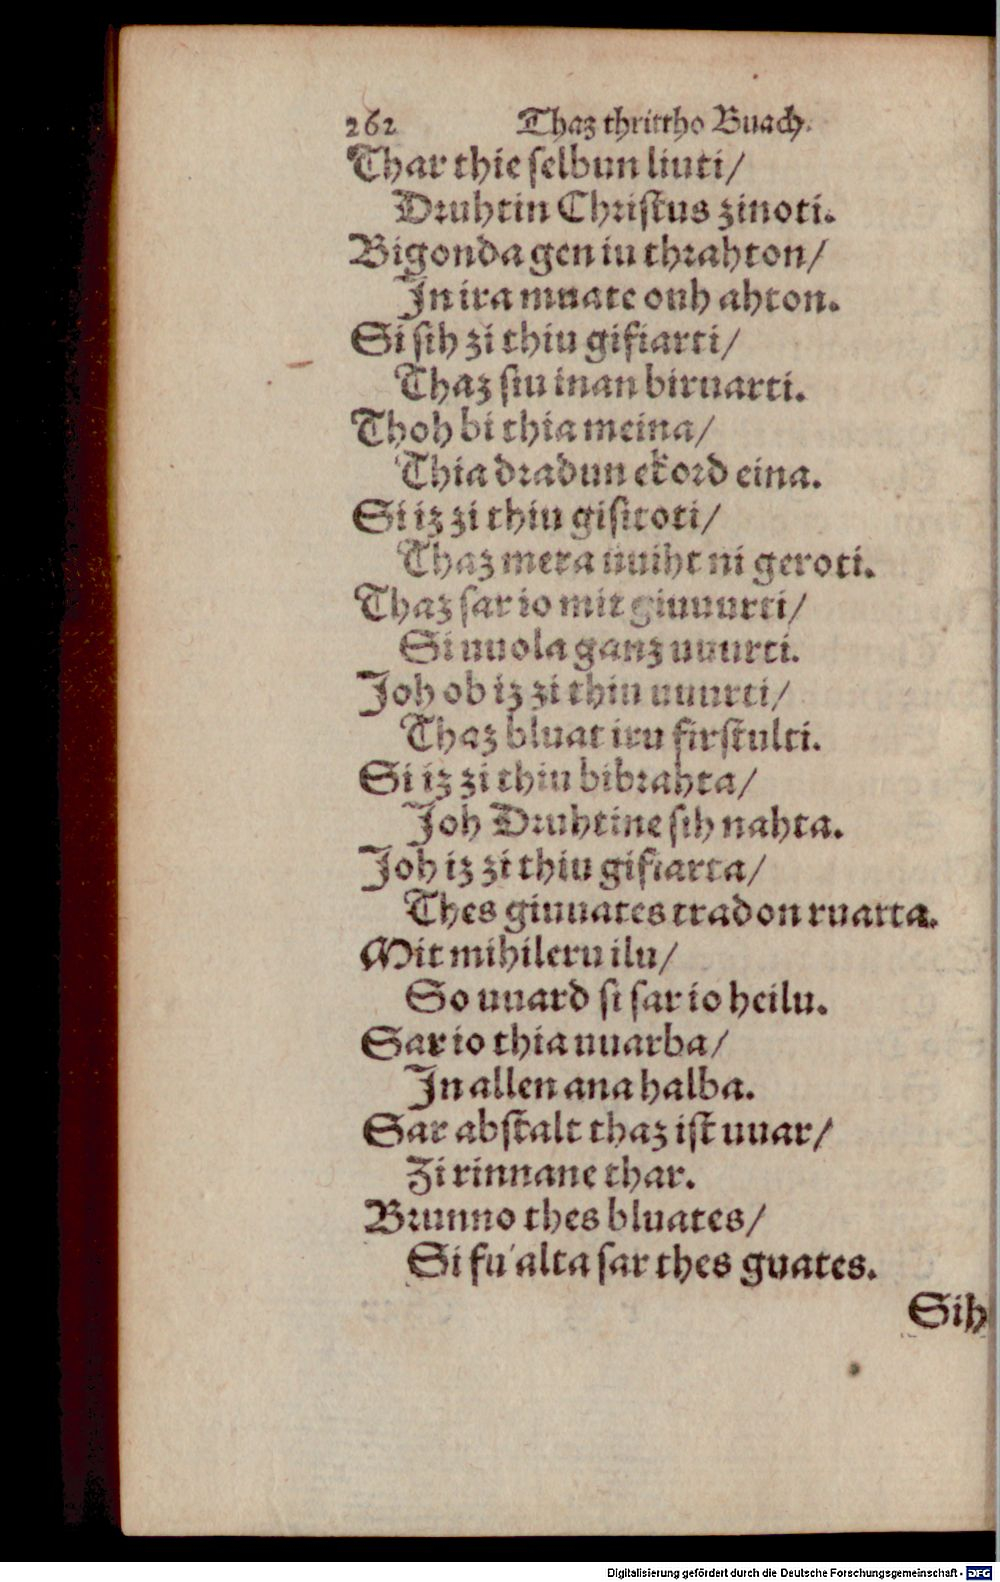 262 Thaz thrittho Buach.
Thar thie selbun liuti/
Druhtin Christus zinoti.
Bigonda gen iu thrahton/
In ira muate ouh ahton.
Si sih zi thiu gifiarti/
Thaz siu inan biruarti.
Thoh bi thia meina/
Thia dradun ekord eina.
Si iz zi thiu gisitoti/
Thaz mera uuiht ni geroti.
Thaz sar io mit giuuurti/
Si uuola ganz uuurti.
Joh ob iz zi thiu uuurti/
Thaz bluat iru firstulti.
Si iz zi thiu bibrahta/
Joh Druhtine sih nahta.
Joh iz zi thiu gifiarta/
Thes giuuates tradon ruarta.
Mit mihileru ilu/
So uuard si sar io heilu.
Sar io thia uuarba/
In allen ana halba.
Sar abstalt thaz ist uuar/
Zi rinnane thar.
Brunno thes bluates/
Si fu'alta sar thes guates.
Sih
Digitalisierung gefördert durch die Deutsche Forschungsgemeinschaft - DFG